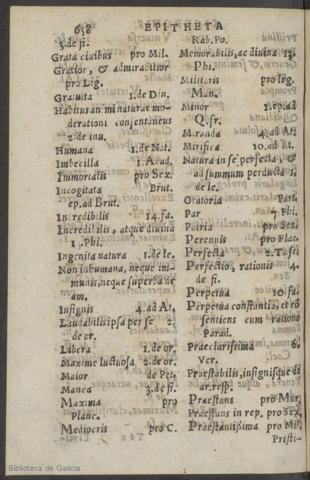 658 EPITHETA
5. de fi.
Grata ciuibus pro Mil.
Gratior, & admirabilior
pro Lig.
Gratuita 1. de Diu.
Habitus animi naturæ mo-
derationi consentaneus
2. de inu.
Humana 1. de Nat.
Imbecilla 1. Acad.
Immortalis pro Sex.
Incogitata Brut.
ep. ad Brut.
Incredibilis 14. fa.
Incredibilis, atque diuina
1. Phi.
Ingenita natura 1. de le.
Non inhumana, neque im-
munis, neque superba de
am.
Insignis 4. ad At.
Laudabilis ipsa per se 2.
de or.
Libera 1. de or.
Maxime luctuosa 2. de or.
Maior de Pet.
Manca 3. de fi.
Maxima pro
Planc.
Mediocris pro C.
Rab. Po.
Memorabilis, ac diuina 13.
Phi.
Militaris pro leg.
Man.
Minor 1. ep. ad
Q. fr.
Miranda 4. ad At.
Mirifica 10. ad At.
Natura in se perfecta, &
ad summum perducta 1.
de le.
Oratoria Part.
Par 7. Phi.
Patria pro Sex.
Perennis pro Flac.
Perfecta 2. Tusc.
Perfectio, rationis 4.
de fi.
Perpetua 10. fa.
Perpetua constantia, et co
sentiens cum ratione
Parad.
Præclarissima 6.
Ver.
Præstabilis, insignisque de
ar. resp.
Præstans pro Mar.
Præstans in rep. pro Sex.
Præstantissima pro Mil.
Pristi-
Biblioteca de Galicia